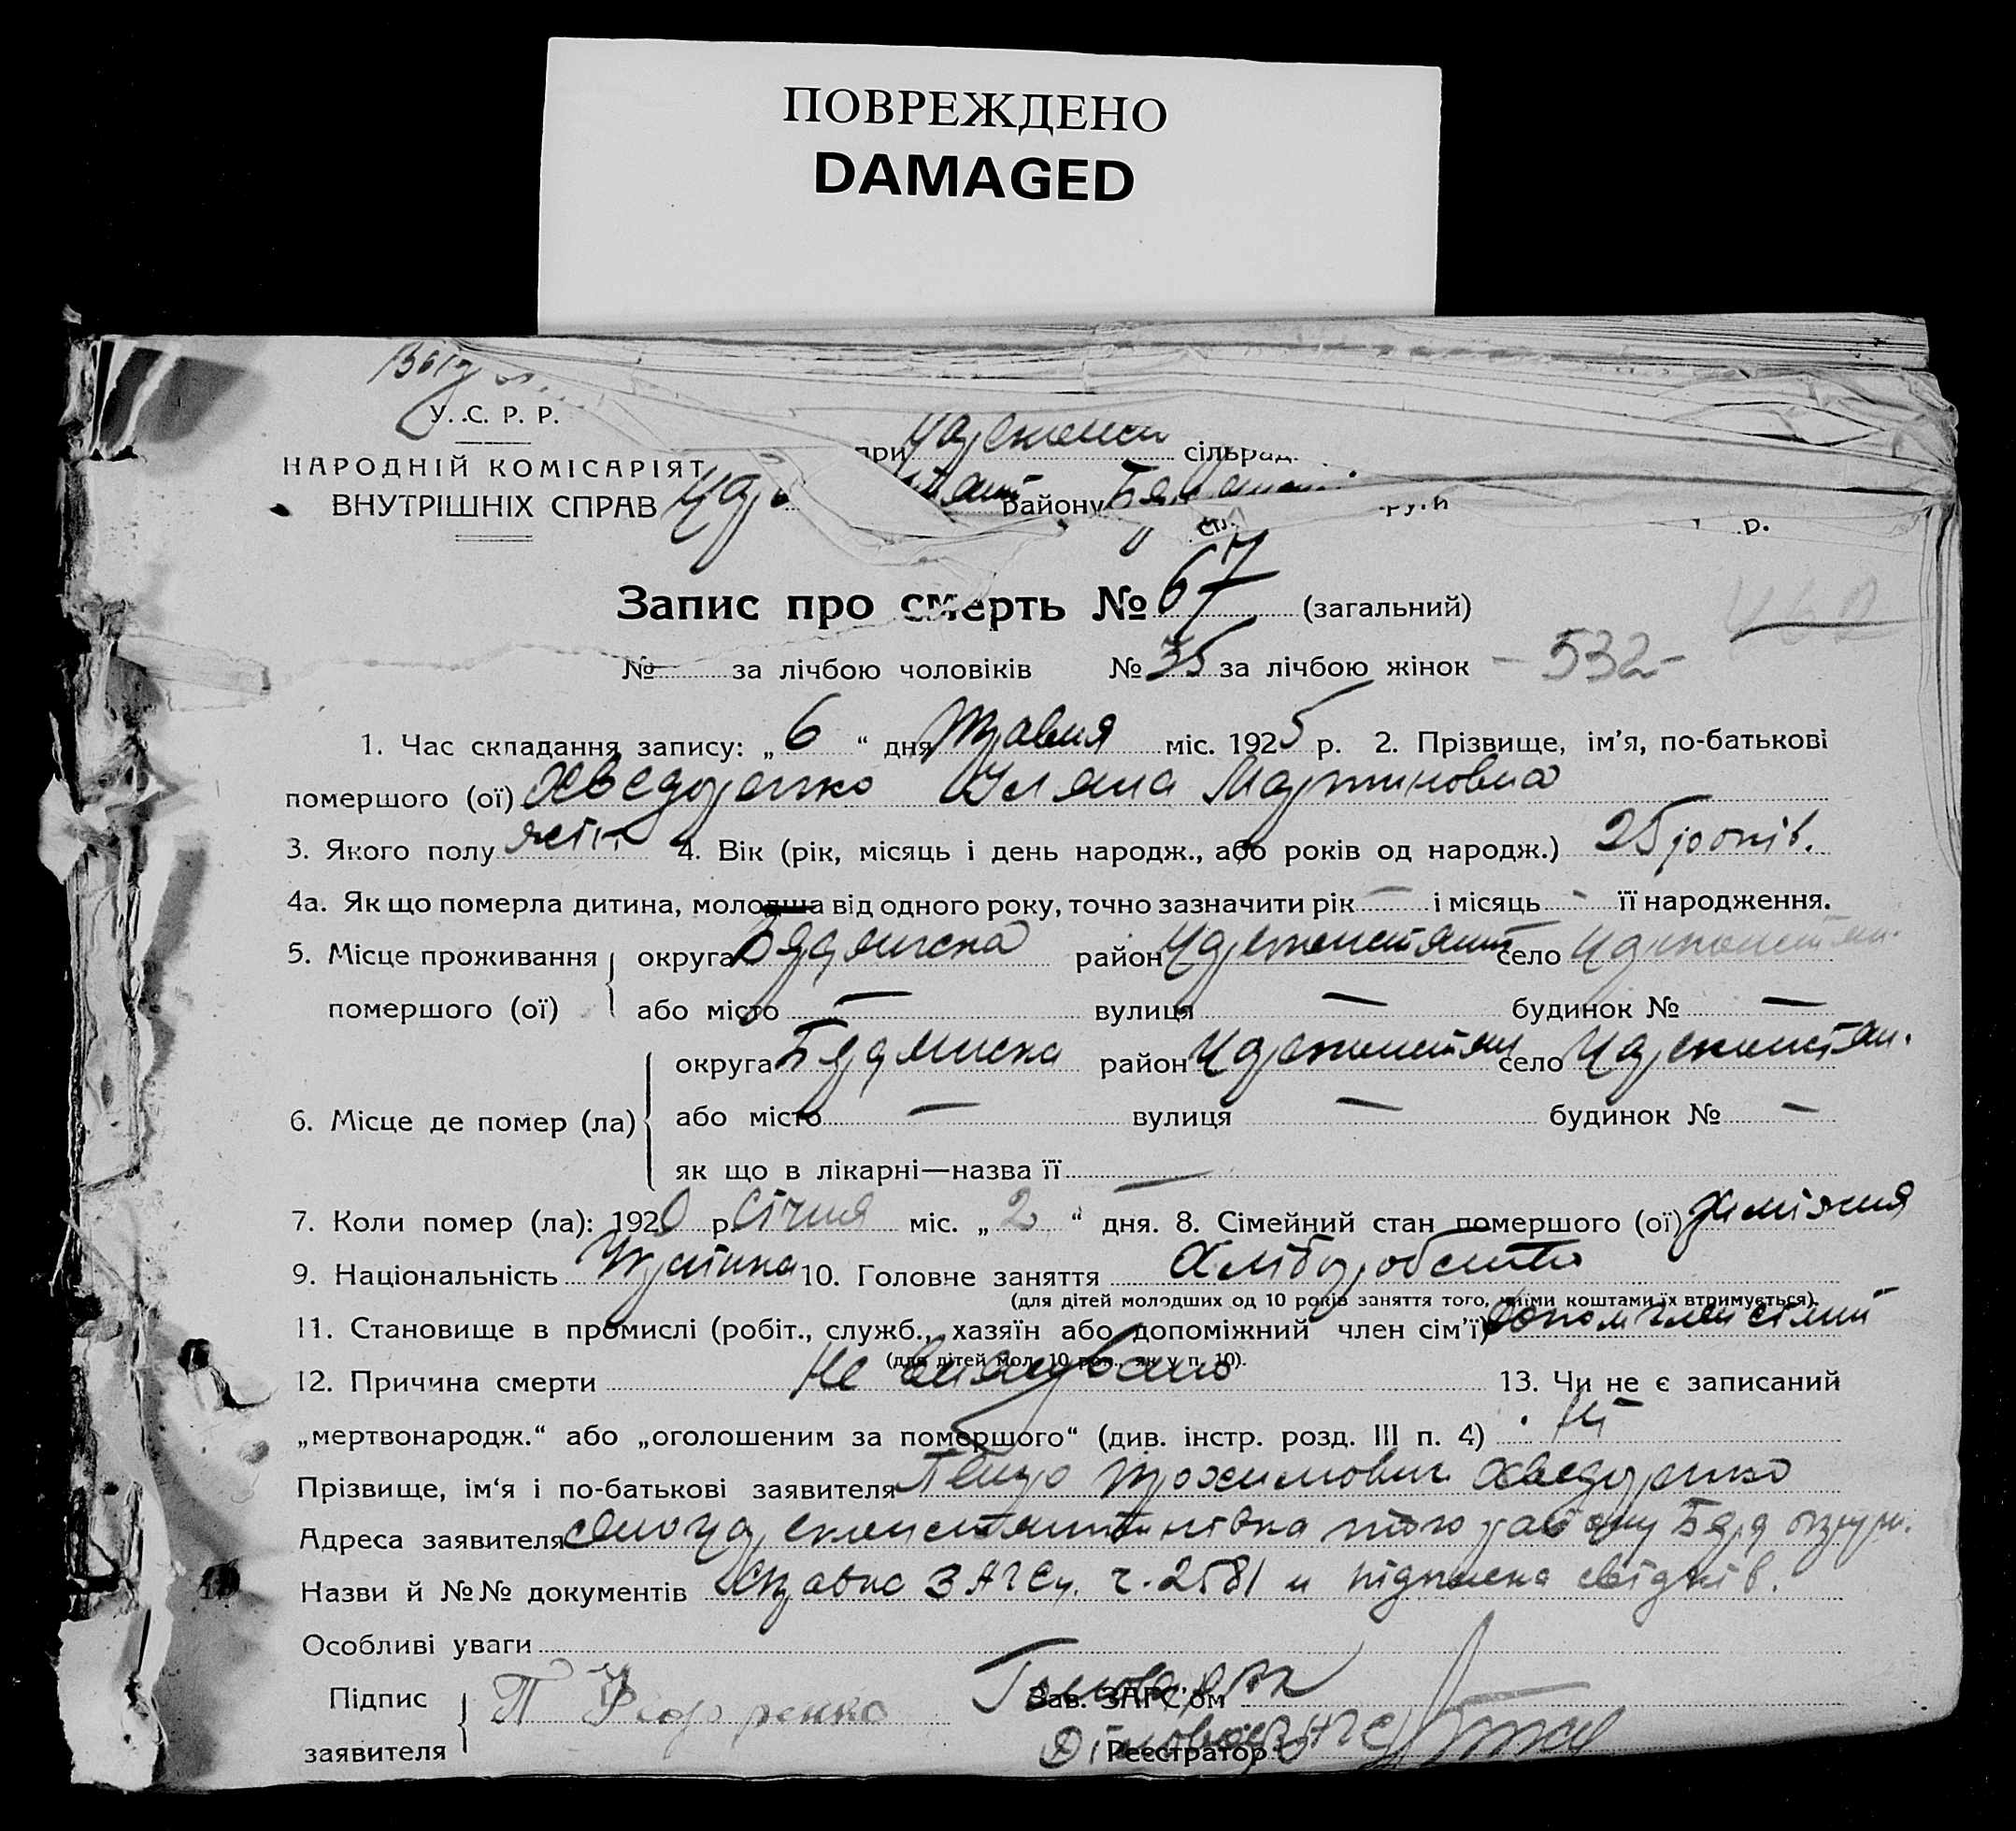 ПОВРЕЖДЕНО
DAMAGED
У. С. Р. Р.
НАРОДНІЙ КОМІСАРІЯТ
ВНУТРІШНІХ СПРАВ
при сільрад.
району
Запис про смерть № 67 (загальний)
№ за лічбою чоловіків № 35 за лічбою жінок - 532 -
1. Час складання запису: „ 6 “ дня Травня міс. 1925 р. 2. Прізвище, ім’я, по-батькові
помершого (ої) Хведоренко Уляна Мартиновна
3. Якого полу жін. 4. Вік (рік, місяць і день народж., або років од народж.) 25 років.
4а. Як що померла дитина, молодша від одного року, точно зазначити рік — і місяць - її народження.
5. Місце проживання округа Бердянська район Цареконстянт село Цареконстян.
помершого (ої) або місто — вулиця — будинок № —
округа Бердянська район Цареконстян село Цареконстян.
6. Місце де помер (ла) або місто — вулиця — будинок № —
як що в лікарні—назва її —
7. Коли помер (ла): 1920 р. Січня міс. „ 2 “ дня. 8. Сімейний стан помершого (ої)
9. Національність Українка 10. Головне заняття Хліборобство
(для дітей молодших од 10 років заняття того, чиїми коштами їх втримується).
11. Становище в промислі (робіт., служб., хазяїн або допоміжний член сім’ї) допом член сімї
(для дітей мол. 10 рок., як у п. 10).
12. Причина смерти Не 13. Чи не є записаний
„мертвонародж.“ або „оголошеним за помершого“ (див. інстр. розд. III п. 4) Ні
Прізвище, ім‘я і по-батькові заявителя Петро Трохимович Хведоренко
Адреса заявителя село Цареконстянтинівка того району Берд округи.
Назви й №№ документів Справка ЗАГСу. ч. 2581 и підписка свідків.
Особливі уваги
Підпис
заявителя П Федоренко
Зав. ЗАГС’ом
Реєстратор